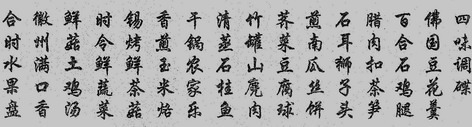 四味调碟
佛国豆花羹
百合石鸡腿
腊肉扣茶笋
石耳狮子头
煎南瓜丝饼
荠菜豆腐球
竹罐山麂肉
清蒸石桂鱼
干锅农家乐
香煎玉米烙
锡烤鲜茶菇
时令鲜蔬菜
鲜菇土鸡汤
徽州满口香
合时水果盘